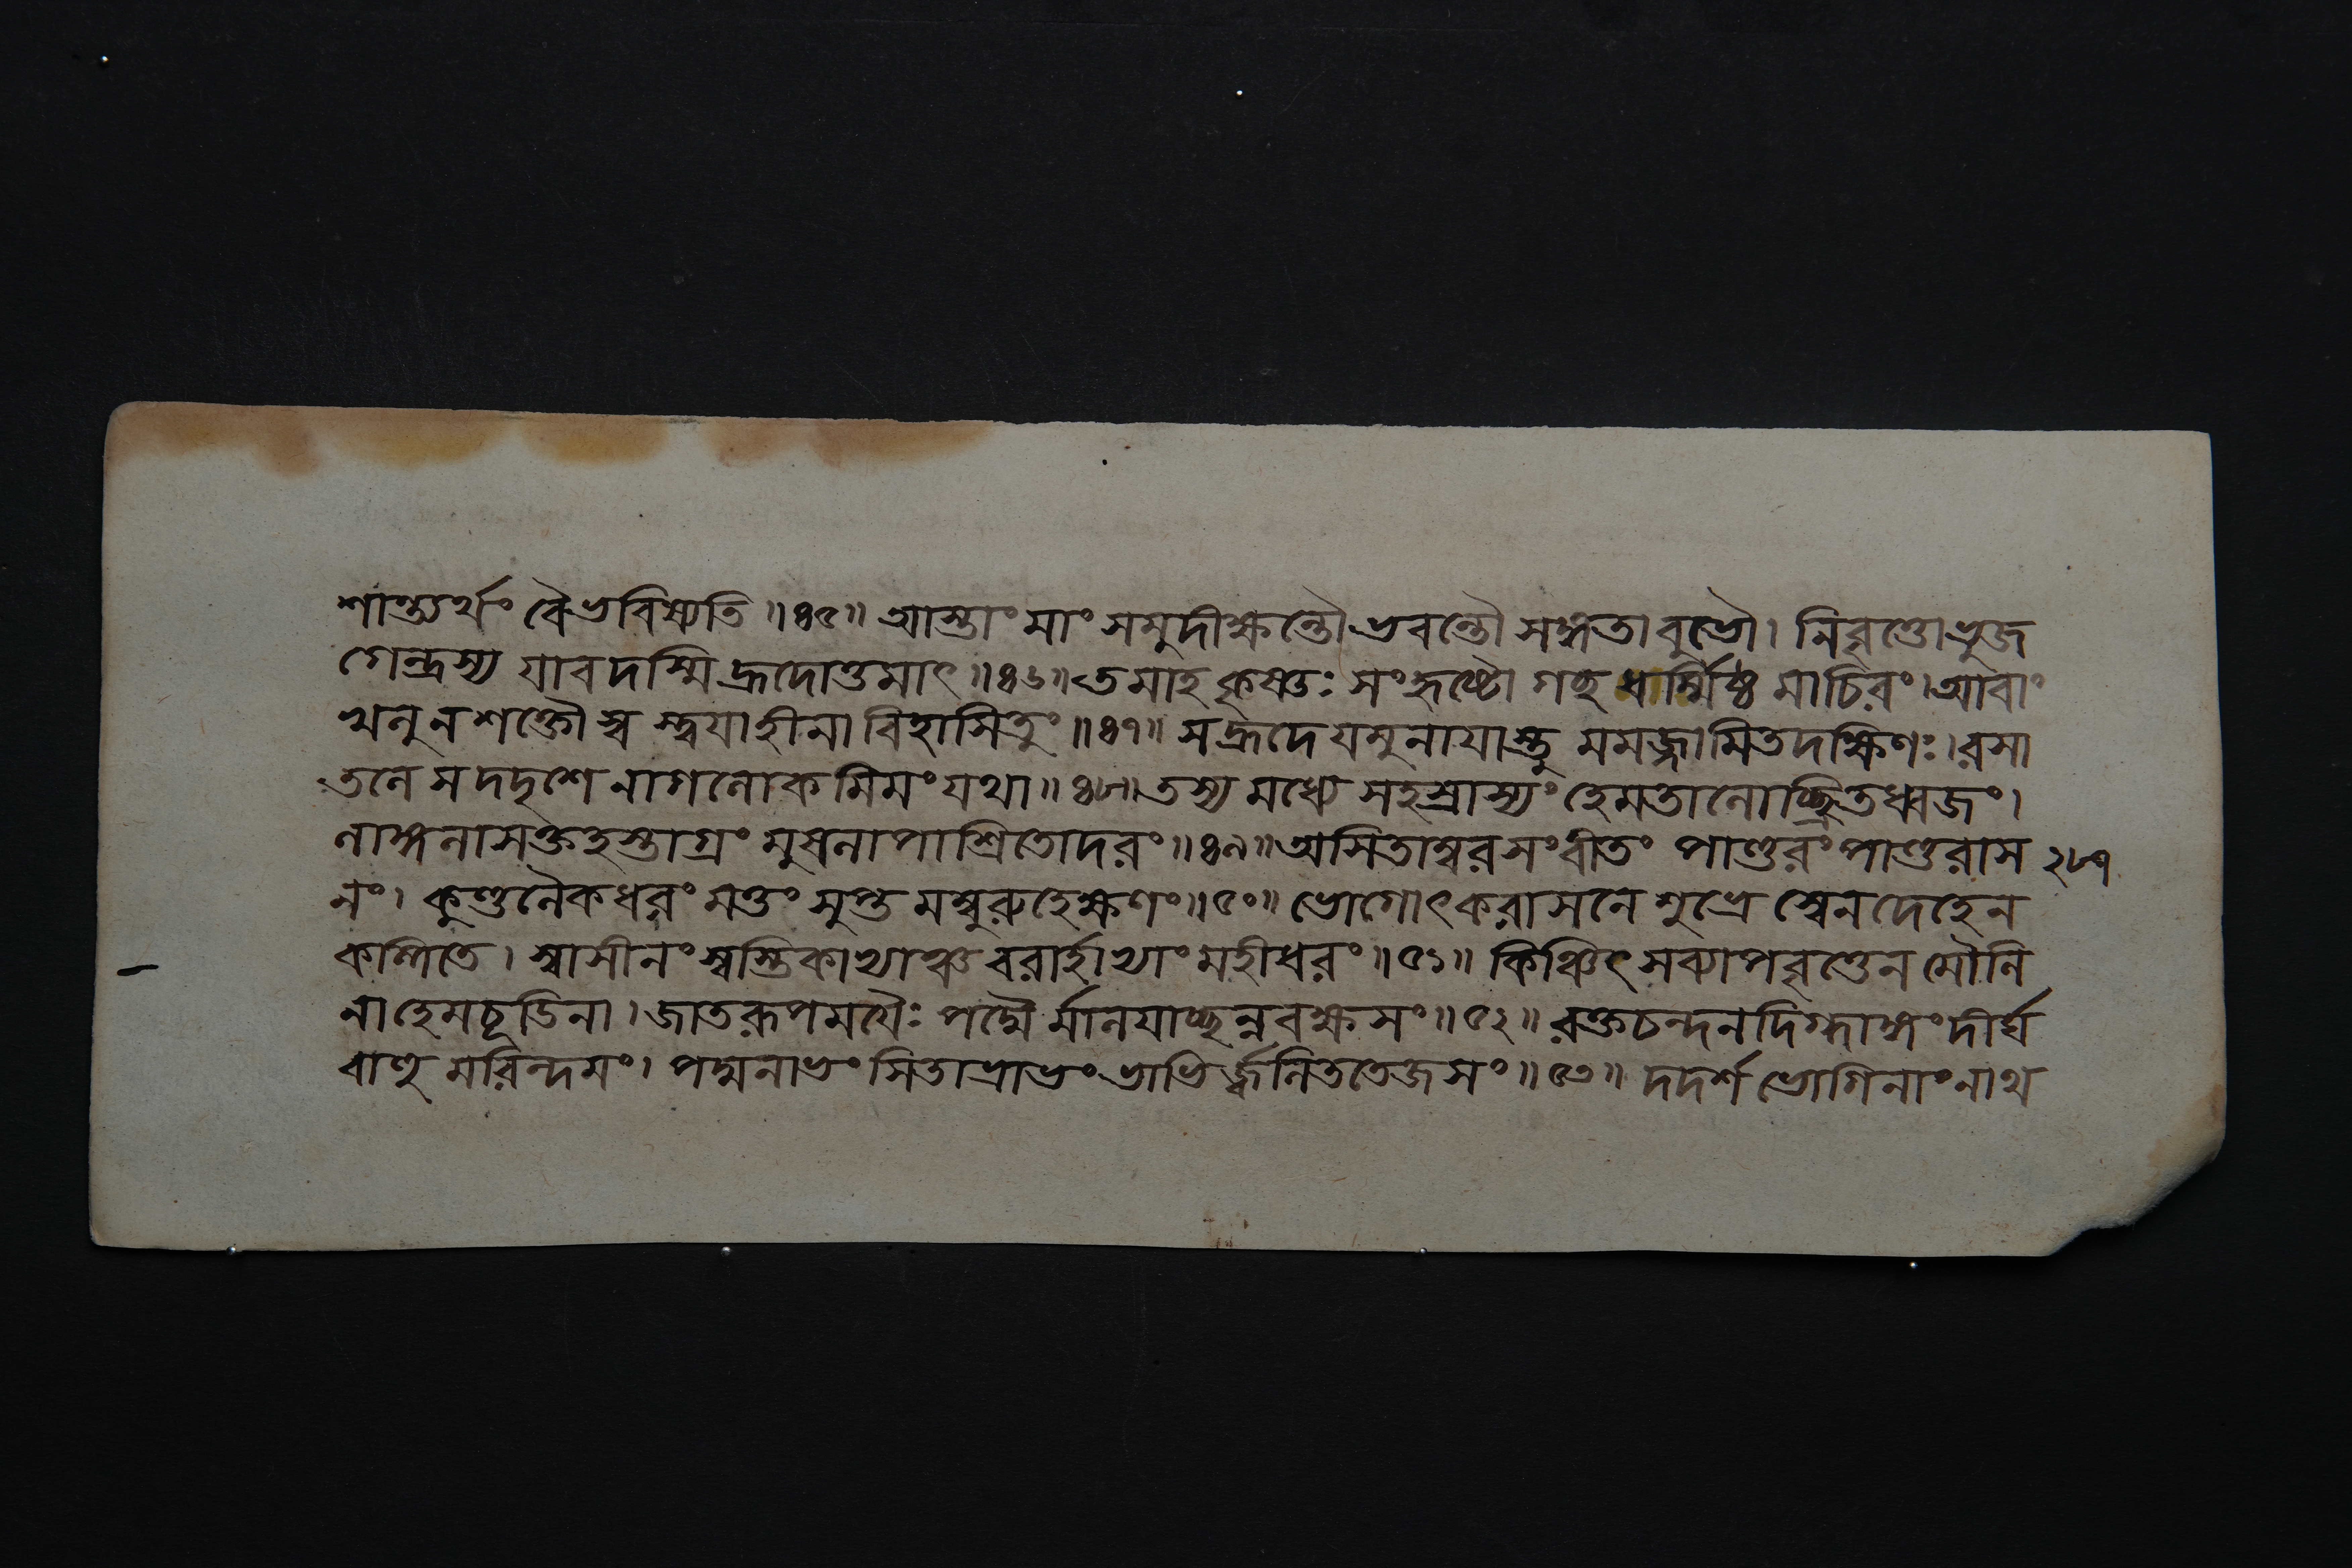 শান্ত্যর্থং বৈ ভবিষ্যতি ॥৪৫॥ আস্তাং মাং সমুদীক্ষন্তৌ ভবন্তৌ সঙ্গতাবুভৌ। নিবৃত্তো ভুজ
গেন্দ্রস্য যাবদস্মি হ্রদোত্তমাৎ ॥৪৬॥ তমাহ কৃষ্ণঃ সংহৃষ্টো গচ্ছ ধার্ম্মিষ্ঠ মাচিরং। আবাং
খলু ন শক্তৌ স্ব স্ত্বয়া হীনা বিহাসিতুং ॥৪৭॥ স হ্রদে যমুনায়াস্তু মমজ্জামিতদক্ষিণঃ। রসা
তলে স দদৃশে নাগলোকমিমং যথা ॥৪৮॥ তস্য মধ্যে সহস্রাস্যং হেমতালোচ্ছ্রিতধ্বজং।
লাঙ্গলাসক্তহস্তাগ্রং মুসলাপাশ্রিতোদরং ॥৪৯॥ অসিতাম্বরসংবীতং পাণ্ডুরং পাণ্ডুরাস ২৮৭
নং। কুণ্ডলৈকধরং মত্তং সুপ্তমম্বুরুহেক্ষণং ॥৫০॥ ভোগোৎকরাসনে শুভ্রে স্বেন দেহেন
কল্পিতে। স্বাসীনং স্বস্তিকাভ্যাঞ্চ বরার্হাভ্যাং মহীধরং ॥৫১॥ কিঞ্চিৎ সব্যাপবৃত্তেন মৌলি
না হেমচূডিনা। জাতরূপময়ৈঃ পদ্মৈর্মালয়াচ্ছন্নবক্ষসং ॥৫২॥ রক্তচন্দনদিগ্ধাঙ্গং দীর্ঘ
বাহুমরিন্দমং। পদ্মনাভং সিতাভ্রাভং ভাভির্জ্জ্বলিততেজসং ॥৫৩॥ দদর্শ ভোগিনাং নাথ